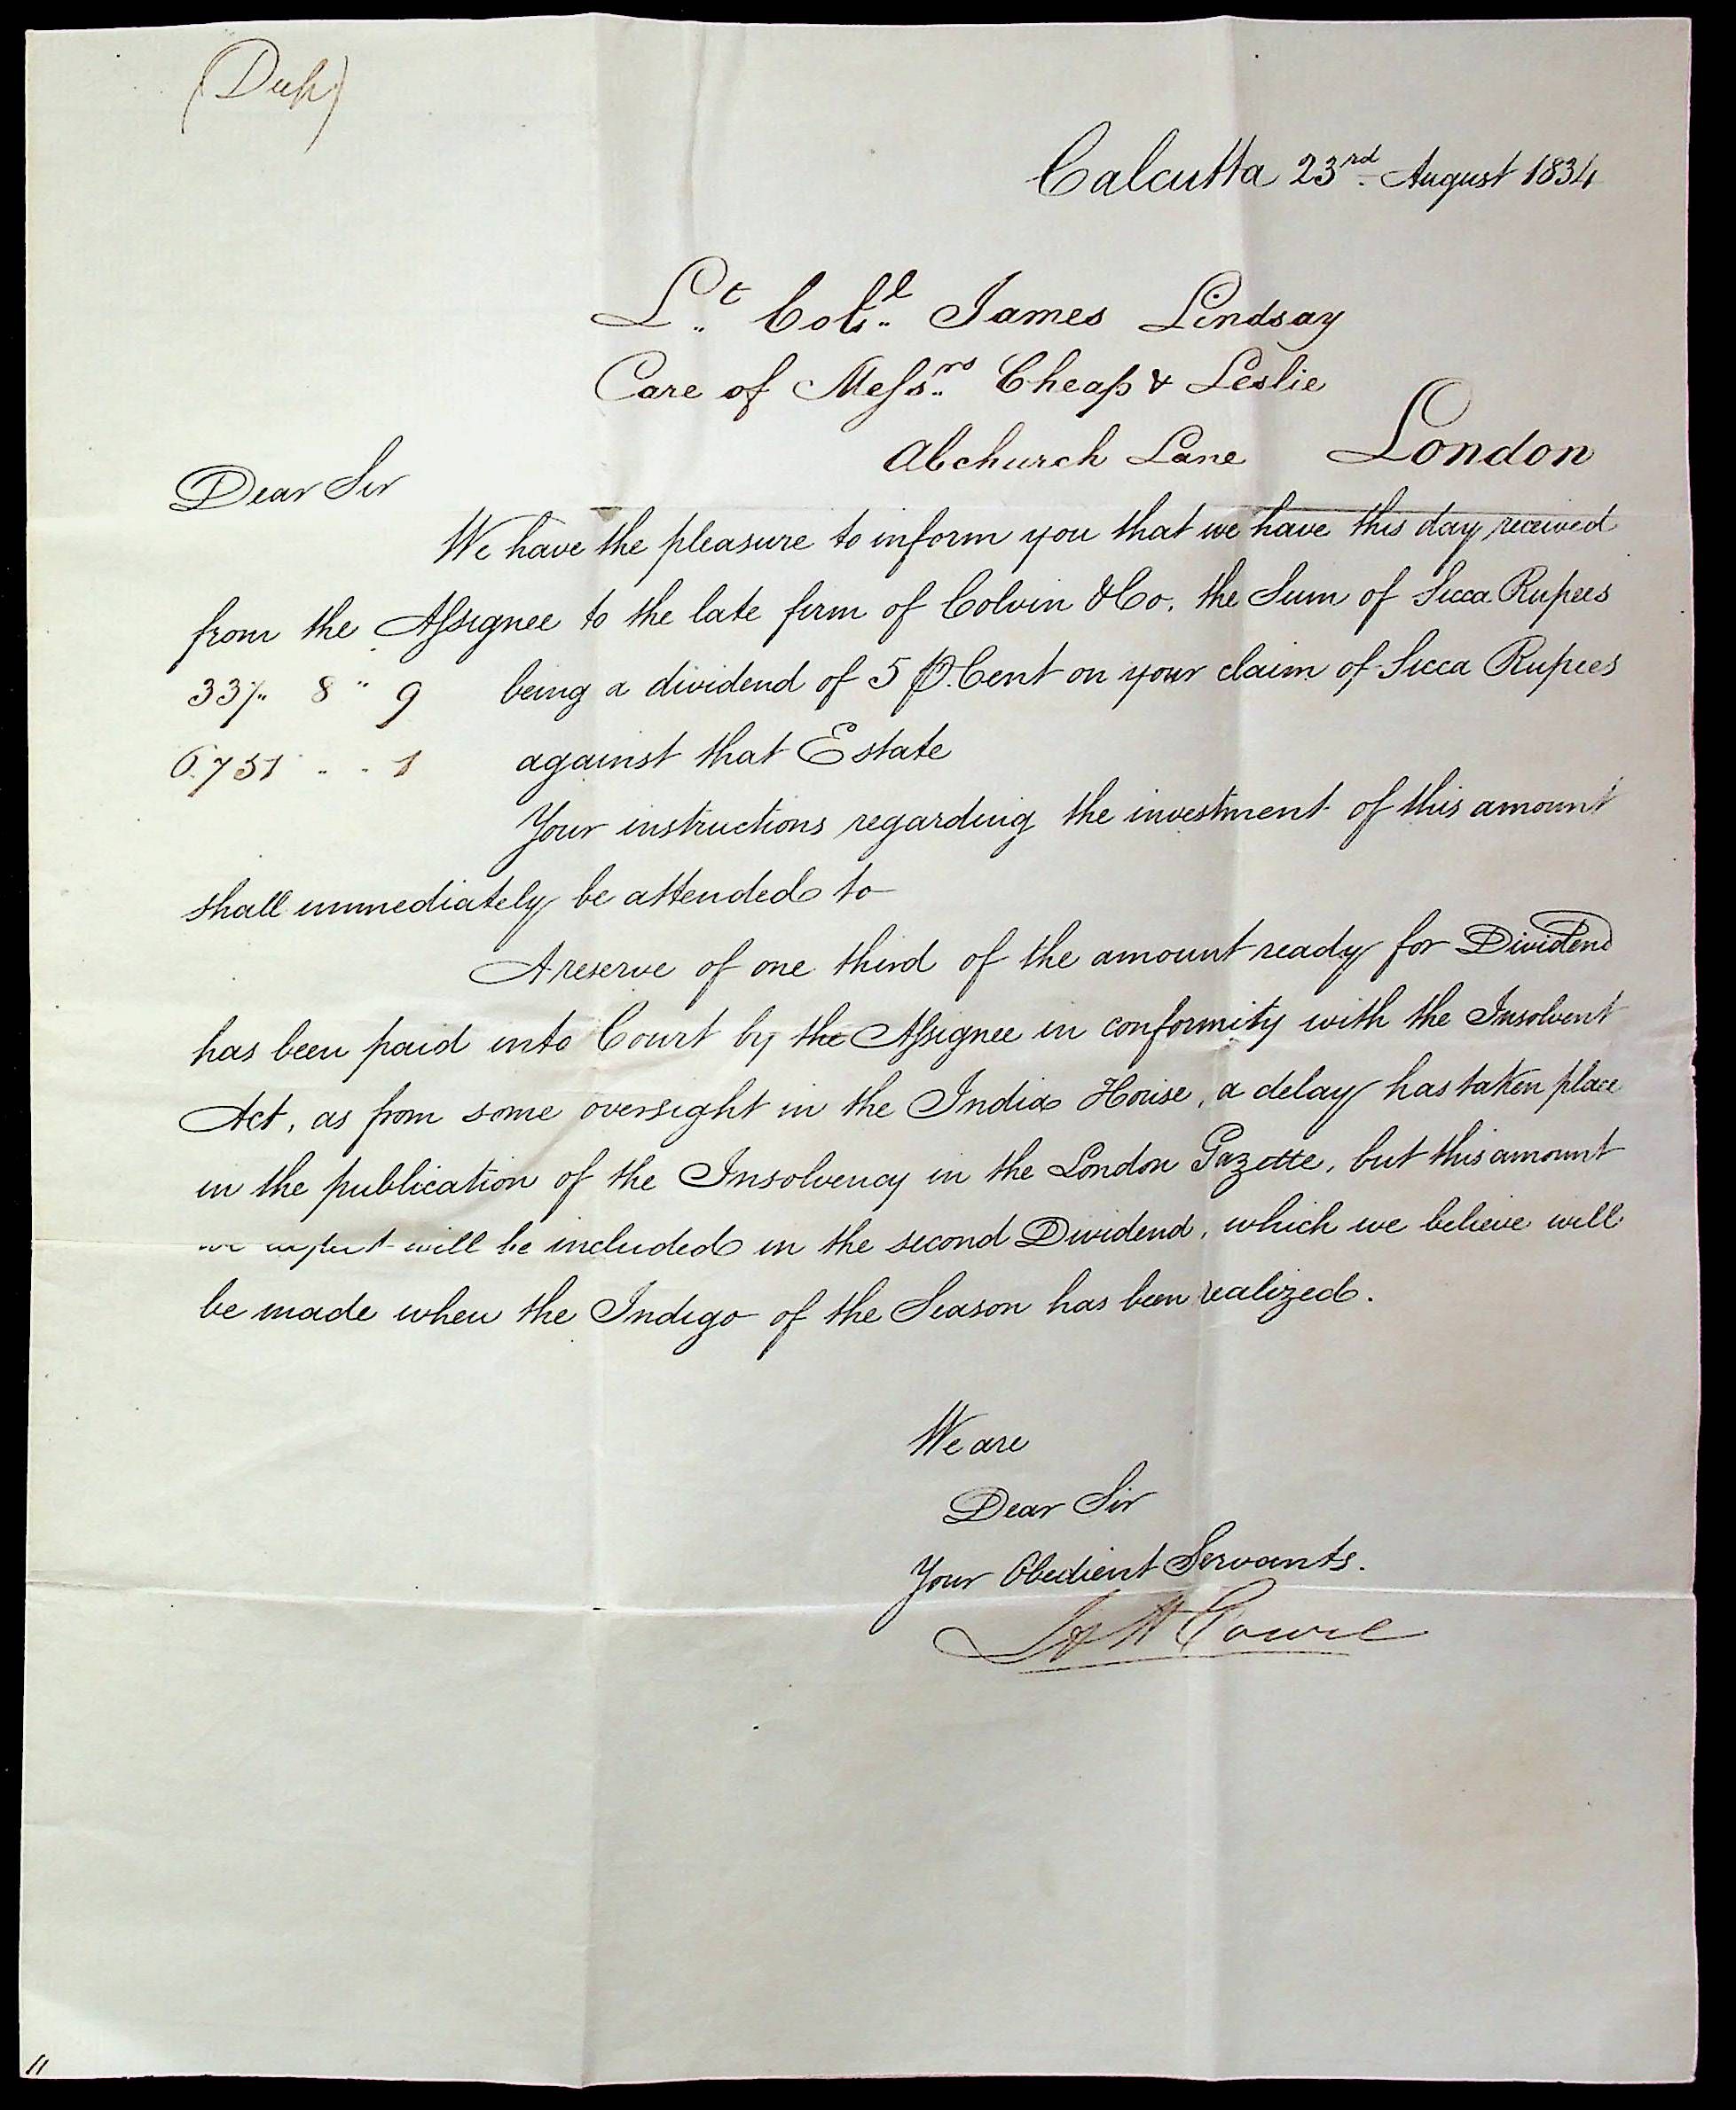 (Dup)
Calcutta 23rd August 1834
Lt Coll James Lindsay
Care of Messrs Cheap & Leslie
Abchurch Lane London
Dear Sir
We have the pleasure to inform you that we have this day received
from the Assignee to the late firm of Colvin & Co. the Sum of Sicca Rupees
8 " 9 being a dividend of 5 ⅌ Cent on your claim of Sicca Rupees
6751 " " 1 against that Estate
Your instructions regarding the investment of this amount
shall immediately be attended to
A reserve of one third of the amount ready for Dividend
has been paid into Court by the Assignee in conformity with the Insolvent
Act, as from some oversight in the India House, a delay has taken place
in the publication of the Insolvency in the London Gazette, but this amount
we expect will be included in the second Dividend, which we believe will
be made when the Indigo of the Season has been realized.
We are
Dear Sir
Your Obedient Servants.